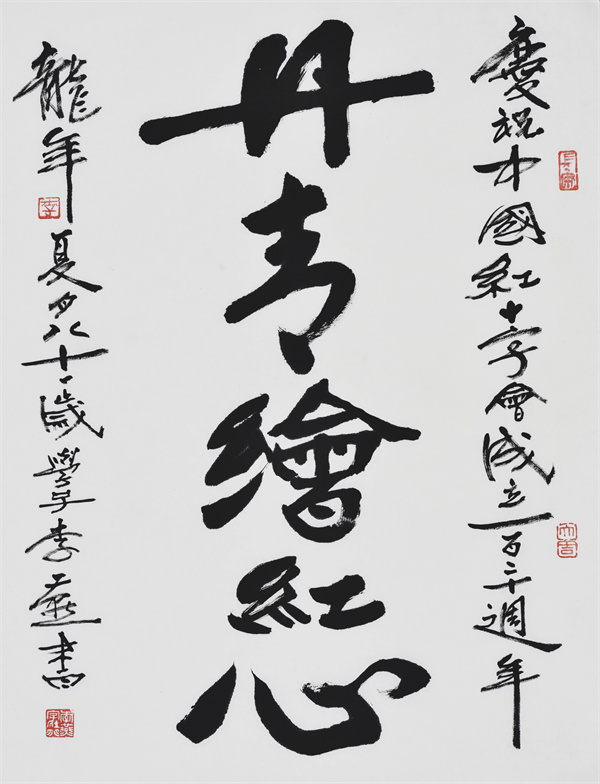 慶祝中國紅十字會成立一百二十週年
丹青繪紅心
龍年夏月八十一歲學李燕書